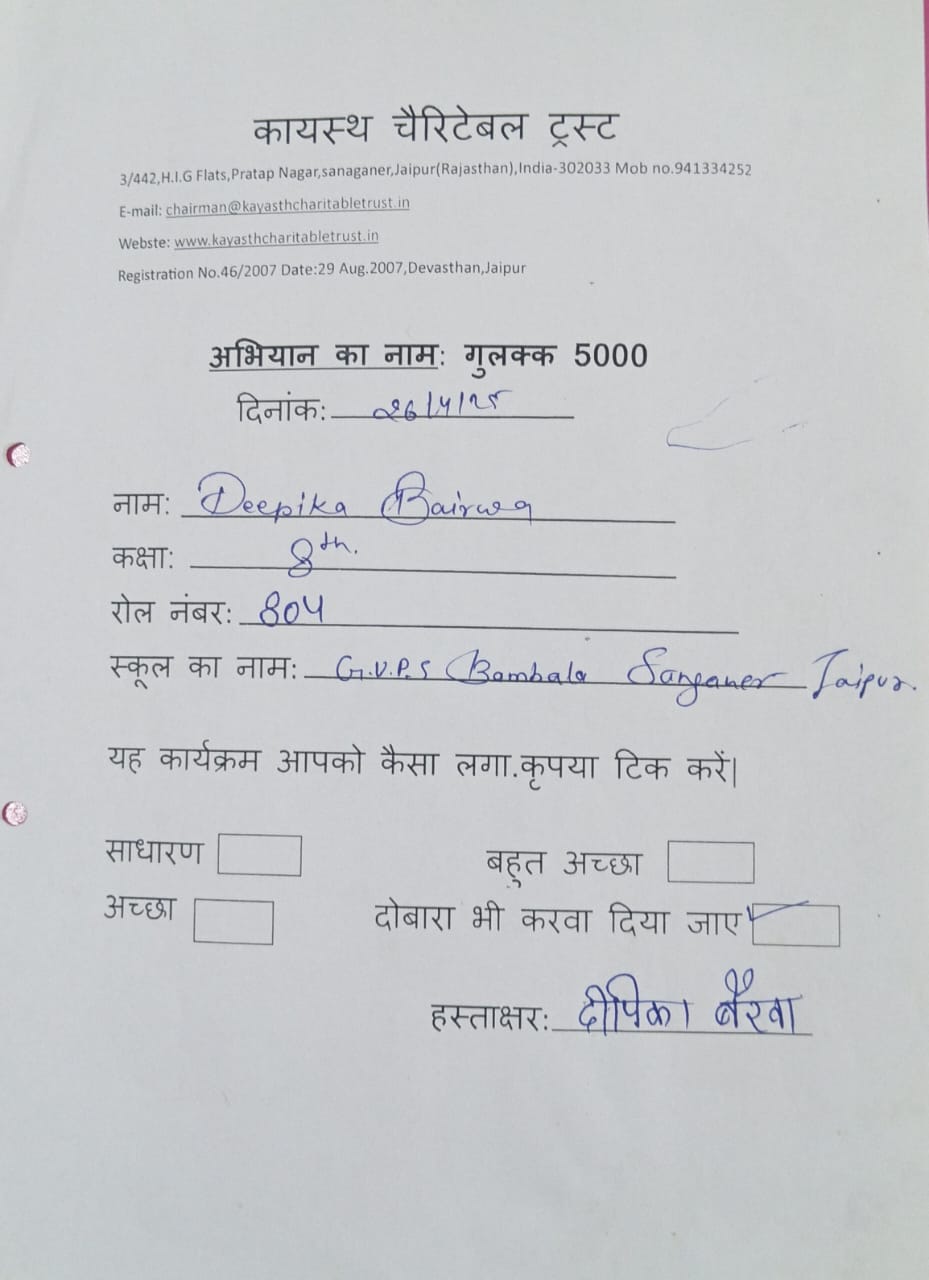 कायस्थ चैरिटेबल ट्रस्ट
3/442,H.I.G Flats,Pratap Nagar,sanaganer,Jaipur(Rajasthan),India-302033 Mob no.941334252
E-mail: chairman@kayasthcharitabletrust.in
Webste: www.kayasthcharitabletrust.in
Registration No.46/2007 Date:29 Aug.2007,Devasthan,Jaipur
अभियान का नाम: गुलक्क 5000
दिनांक: 26/4/25
नाम: Deepika Bairwa
कक्षा: 8th.
रोल नंबर: 804
स्कूल का नाम: G.U.P.S Bambala Sanganer Jaipur.
यह कार्यक्रम आपको कैसा लगा.कृपया टिक करें|
साधारण बहुत अच्छा
अच्छा दोबारा भी करवा दिया जाए
हस्ताक्षर: दीपिका बैरवा